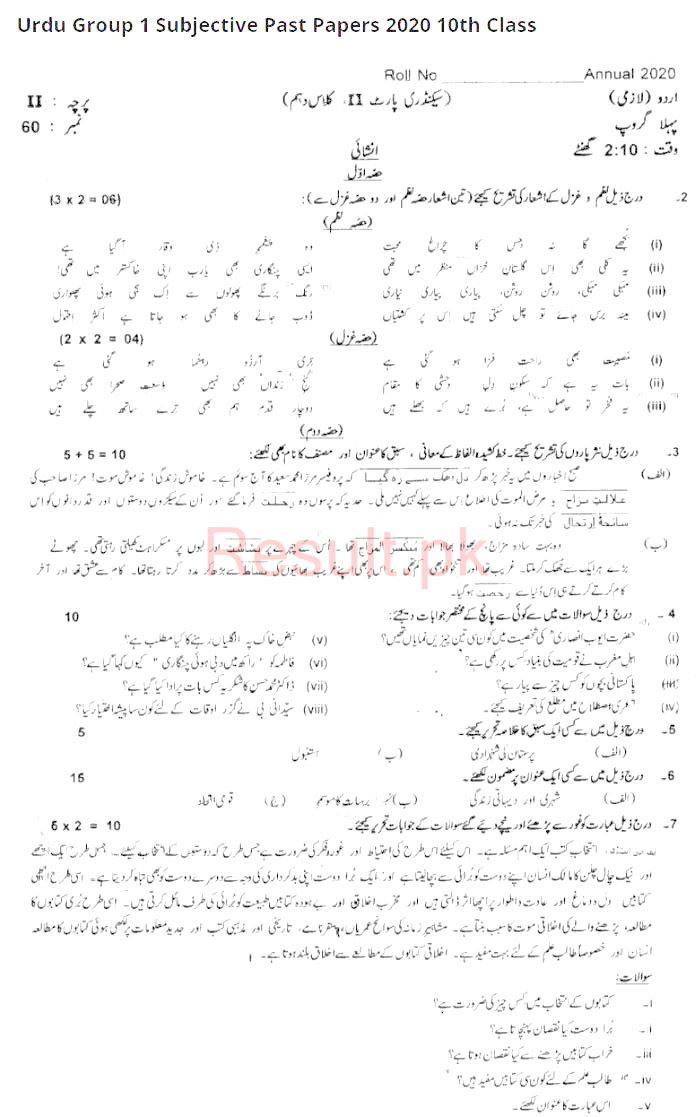 Urdu Group 1 Subjective Past Papers 2020 10th Class
Roll No ______________ Annual 2020
اردو (لازمی) (سیکنڈری پارٹ II، کلاس دہم) پرچہ : II
پہلا گروپ نمبر : 60
وقت : 2:10 گھنٹے انشائی
حصہ اوّل
2۔ درج ذیل نظم و غزل کے اشعار کی تشریح کیجئے (تین اشعار حصہ نظم اور دو حصہ غزل سے): (3 x 2 = 06)
(حصہ نظم)
(i) بجھے گا نہ جس کا چراغ محبت وہ پیغمبر ذی وقار آگیا ہے
(ii) یہ کلی بھی اس گلستان خزاں منظر میں تھی ایسی چنگاری بھی یارب اپنی خاکستر میں تھی!
(iii) مہکی مہکی، روشن روشن، پیاری پیاری نیاری رنگ برنگے پھولوں سے اک بھی ہوئی پھلواری
(iv) مینہ برس جائے تو چل سکتی ہیں اس پر کشتیاں ڈوب جانے کا بھی ہو جاتا ہے اکثر احتمال
(حصہ غزل) (2 x 2 = 04)
(i) مصیبت بھی راحت فزا ہو گئی ہے تری آرزو رہنما ہو گئی ہے
(ii) بات یہ ہے کہ سکون دل وحشی کا مقام کنج زنداں بھی نہیں وسعت صحرا بھی نہیں
(iii) یہ فخر تو حاصل ہے، برے ہیں کہ بھلے ہیں دوچار قدم ہم بھی ترے ساتھ چلے ہیں
(حصہ دوم)
3۔ درج ذیل نثر پاروں کی تشریح کیجئے۔ خط کشیدہ الفاظ کے معانی، سبق کا عنوان اور مصنف کا نام بھی لکھئے: 5 + 5 = 10
(الف) صبح اخباروں میں یہ خبر پڑھ کر دل دھک سے رہ گیا کہ پروفیسر مرزا محمد سعید کا آج سوم ہے۔ خاموش زندگی! خاموش موت! مرزا صاحب کی
علالتِ مزاج یا مرض الموت کی اطلاع اس سے پہلے کہیں نہیں ملی۔ حد یہ کہ پرسوں وہ رحلت فرما گئے اور اُن کے سیکڑوں دوستوں اور قدر دانوں کو اس
سانحۂ ارتحال کی خبر تک نہ ہوئی۔
(ب) وہ بہت سادہ مزاج، بھولا بھالا اور منکسر المزاج تھا۔ اُس کے چہرے پر بشاشت اور لبوں پر مسکراہٹ کھیلتی رہتی تھی۔ چھوٹے
بڑے ہر ایک سے جھک کر ملتا۔ غریب تھا اور تنخواہ بھی کم تھی، اس پر بھی اپنے غریب بھائیوں کی بساط سے بڑھ کر مدد کرتا رہتا تھا۔ کام سے عشق تھا اور آخر
کام کرتے کرتے ہی اس دُنیا سے رخصت ہو گیا۔
Result.pk
4۔ درج ذیل سوالات میں سے کوئی سے پانچ کے مختصر جوابات دیجئے: 10
(i) حضرت ایوب انصاریؓ کی شخصیت میں کون سی تین چیزیں نمایاں تھیں؟ (v) نبض خاک پہ انگلیاں رہنے کا کیا مطلب ہے؟
(ii) اہل مغرب نے قومیت کی بنیاد کس پر رکھی ہے؟ (vi) فاطمہ کو "راکھ میں دبی ہوئی چنگاری" کیوں کہا گیا ہے؟
(iii) پاکستانی بچوں کو کس چیز سے پیار ہے؟ (vii) ڈاکٹر محمد حسن کا شکریہ کس بات پر ادا کیا گیا ہے؟
(iv) شعری اصطلاح میں مطلع کی تعریف کیجئے۔ (viii) سیدانی بی نے گزر اوقات کے لئے کون سا پیشہ اختیار کیا؟
5۔ درج ذیل میں سے کسی ایک سبق کا خلاصہ تحریر کیجئے۔ 5
(الف) پرستان کی شہزادی (ب) استنبول
6۔ درج ذیل میں سے کسی ایک عنوان پر مضمون لکھئے۔ 15
(الف) شہری اور دیہاتی زندگی (ب) برسات کا موسم (ج) قومی اتحاد
7۔ درج ذیل عبارت کو غور سے پڑھئے اور نیچے دیے گئے سوالات کے جوابات تحریر کیجئے۔ 5 x 2 = 10
انتخاب کتب ایک اہم مسئلہ ہے۔ اس کیلئے اس طرح کی احتیاط اور غور و فکر کی ضرورت ہے جس طرح کہ دوستوں کے انتخاب کیلئے۔ جس طرح ایک اچھے
اور نیک چال چلن کا مالک انسان اپنے دوست کو برائی سے بچا لیتا ہے اور ایک برا دوست اپنی بدکرداری کی وجہ سے دوسرے دوست کو بھی تباہ کر دیتا ہے۔ اسی طرح اچھی
کتابیں دل و دماغ اور عادت و اطوار پر اچھا اثر ڈالتی ہیں اور مخرب اخلاق اور بے ہودہ کتابیں طبیعت کو برائی کی طرف مائل کرتی ہیں۔ اسی طرح بری کتابوں کا
مطالعہ، پڑھنے والے کی اخلاقی موت کا سبب بنتا ہے۔ مشاہیر زمانہ کی سوانح عمریاں، سفرنامے، تاریخی اور مذہبی کتب اور جدید معلومات پر لکھی ہوئی کتابوں کا مطالعہ
انسان اور خصوصاً طالب علم کے لئے بہت مفید ہے۔ اخلاقی کتابوں کے مطالعے سے اخلاق بلند ہوتا ہے۔
سوالات:
i۔ کتابوں کے انتخاب میں کس چیز کی ضرورت ہے؟
ii۔ برا دوست کیا نقصان پہنچاتا ہے؟
iii۔ خراب کتابیں پڑھنے سے کیا نقصان ہوتا ہے؟
iv۔ طالب علم کے لئے کون سی کتابیں مفید ہیں؟
v۔ اس عبارت کا عنوان لکھئے۔